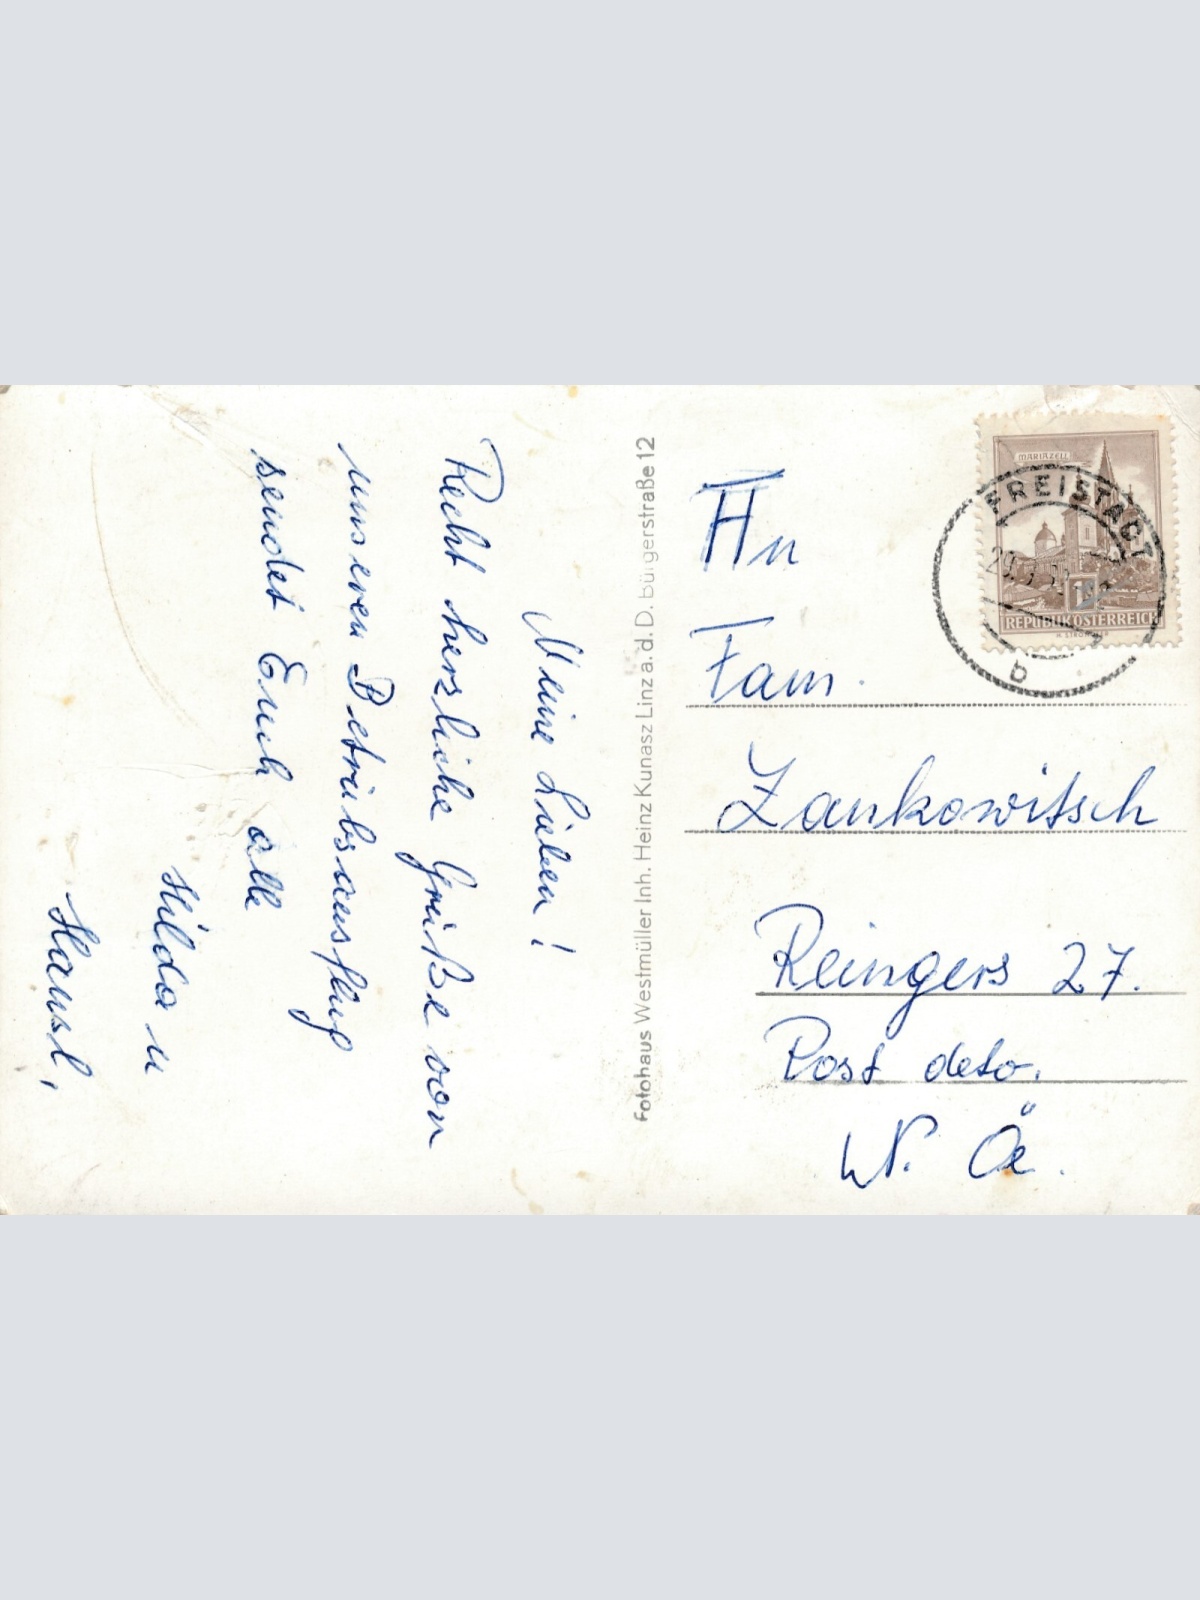 Meine Lieben!
Recht herzliche Grüße von
unseren Betriebsausflug
sendet Euch alle
Hilda u
Hansl,
Fotohaus Westmüller Inh. Heinz Kunasz Linz a. d. D. Bürgerstraße 12
MARIAZELL
FREISTADT
b
REPUBLIK ÖSTERREICH
An
Fam.
Zankowitsch
Reingers 27.
Post deto.
N. Ö.